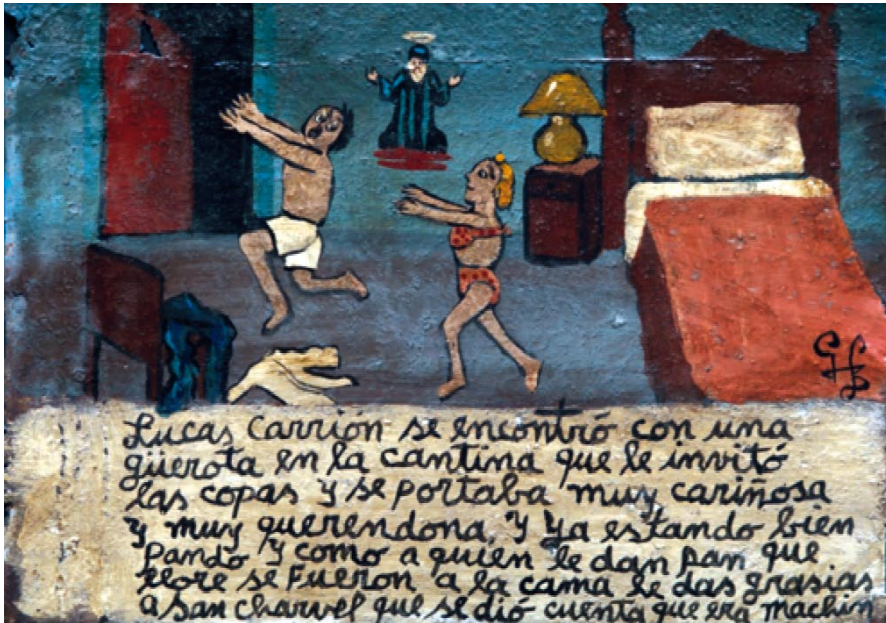 GHB
Lucas Carrión se encontró con una
güerota en la cantina que le invitó
las copas y se portaba muy cariñosa
y muy querendona, y ya estando bien
pando y como a quien le dan pan que
llore se fueron a la cama le das grasias
a San Charvel que se dió cuenta que era machin